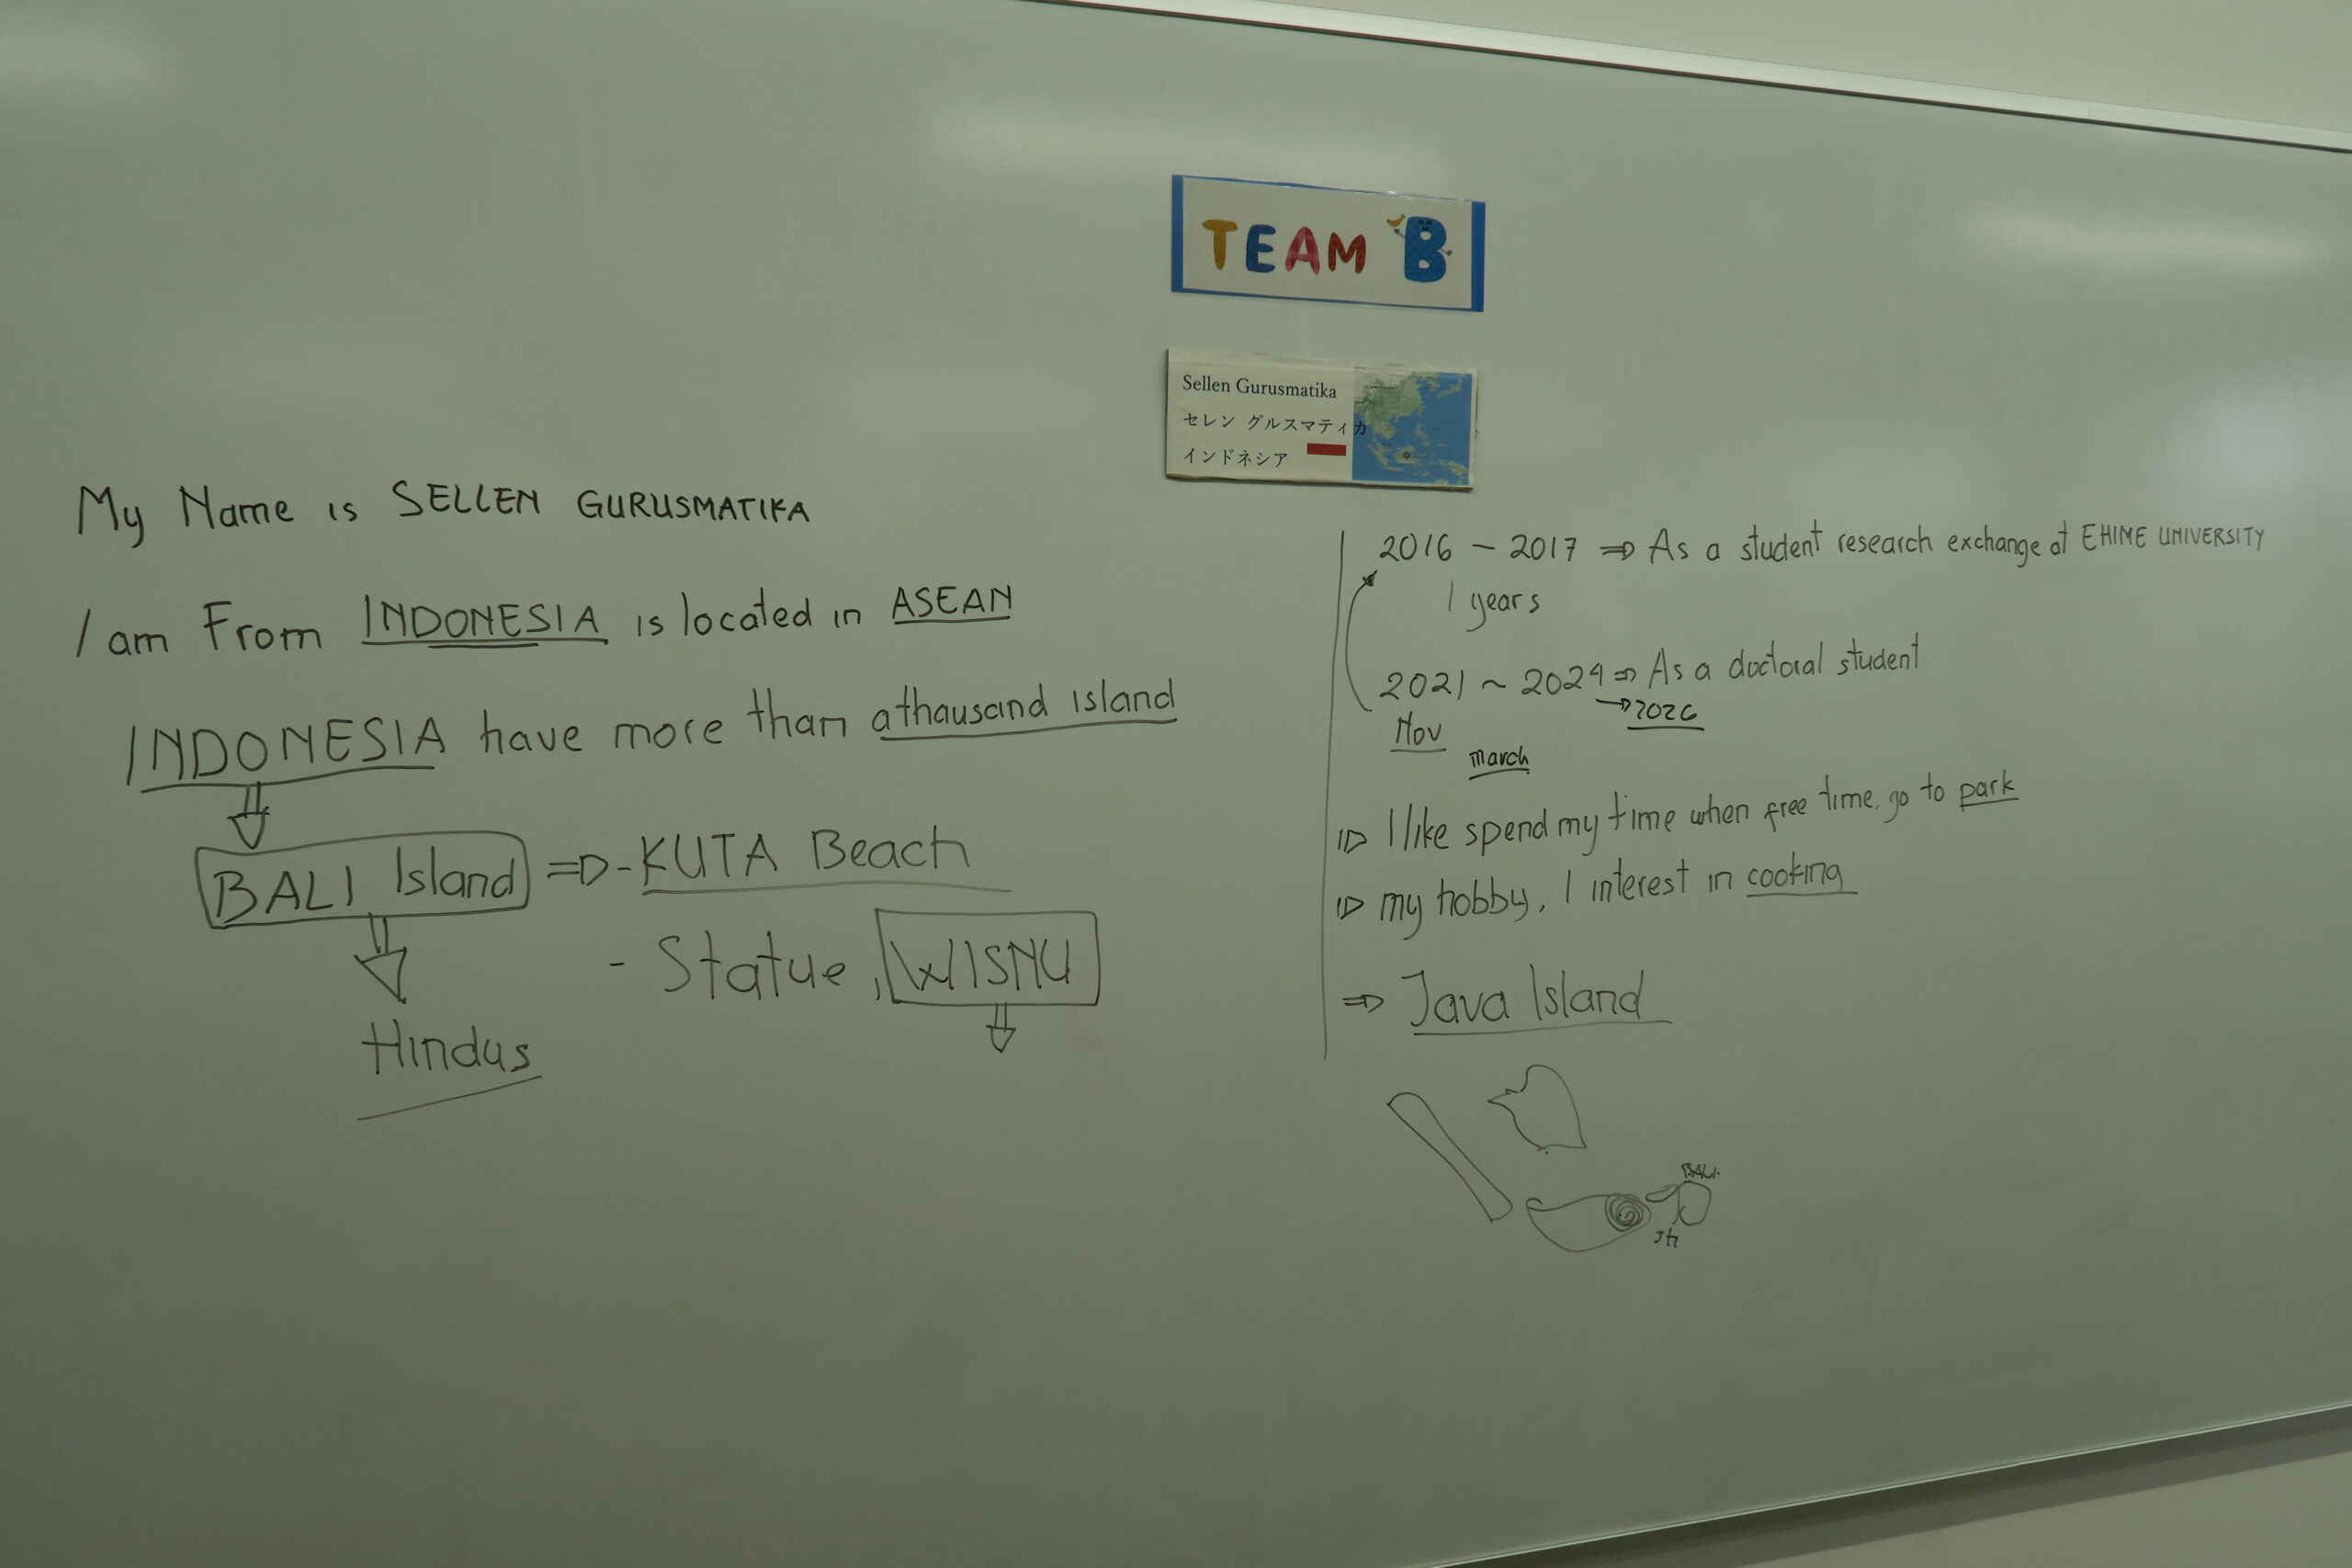 TEAM B
Sellen Gurusmatika
セレン グルスマティカ
インドネシア
My Name is SELLEN GURUSMATIKA
I am From INDONESIA is located in ASEAN
INDONESIA have more than a thausand island
BALI Island ⇒ - KUTA Beach
- Statue, WISNU
Hindus
2016 - 2017 ⇒ As a student research exchange at EHIME UNIVERSITY
1 years
2021 ~ 2024 ⇒ As a doctoral student
→ 2026
Nov
march
⇒ I like spend my time when free time, go to park
⇒ my hobby, I interest in cooking
⇒ Java Island
BALI